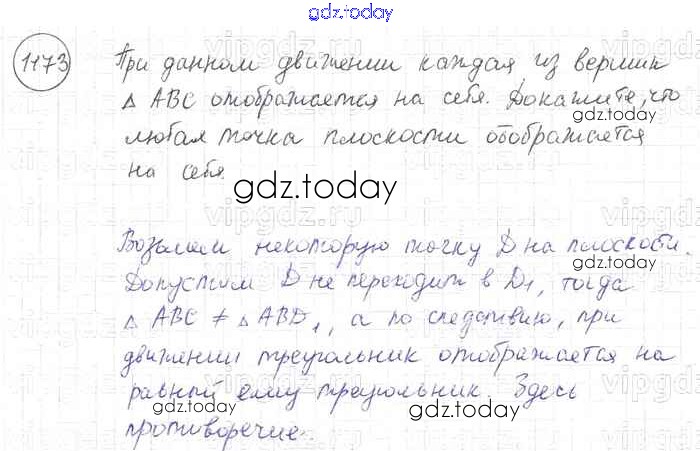 gdz.today
1173
При данном движении каждая из вершин
△ ABC отображается на себя. Докажите, что
gdz.today
любая точка плоскости отображается
на себя.
gdz.today
Возьмем некоторую точку D на плоскости.
Допустим D не переходит в D₁, тогда
△ ABC ≠ △ ABD₁, а по следствию, при
движении треугольник отображается на
равный ему треугольник. Здесь
gdz.today
противоречие.
gdz.today